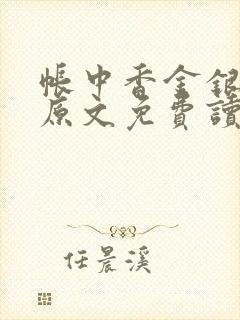 帳中香金銀
原文免費讀
任晨溪